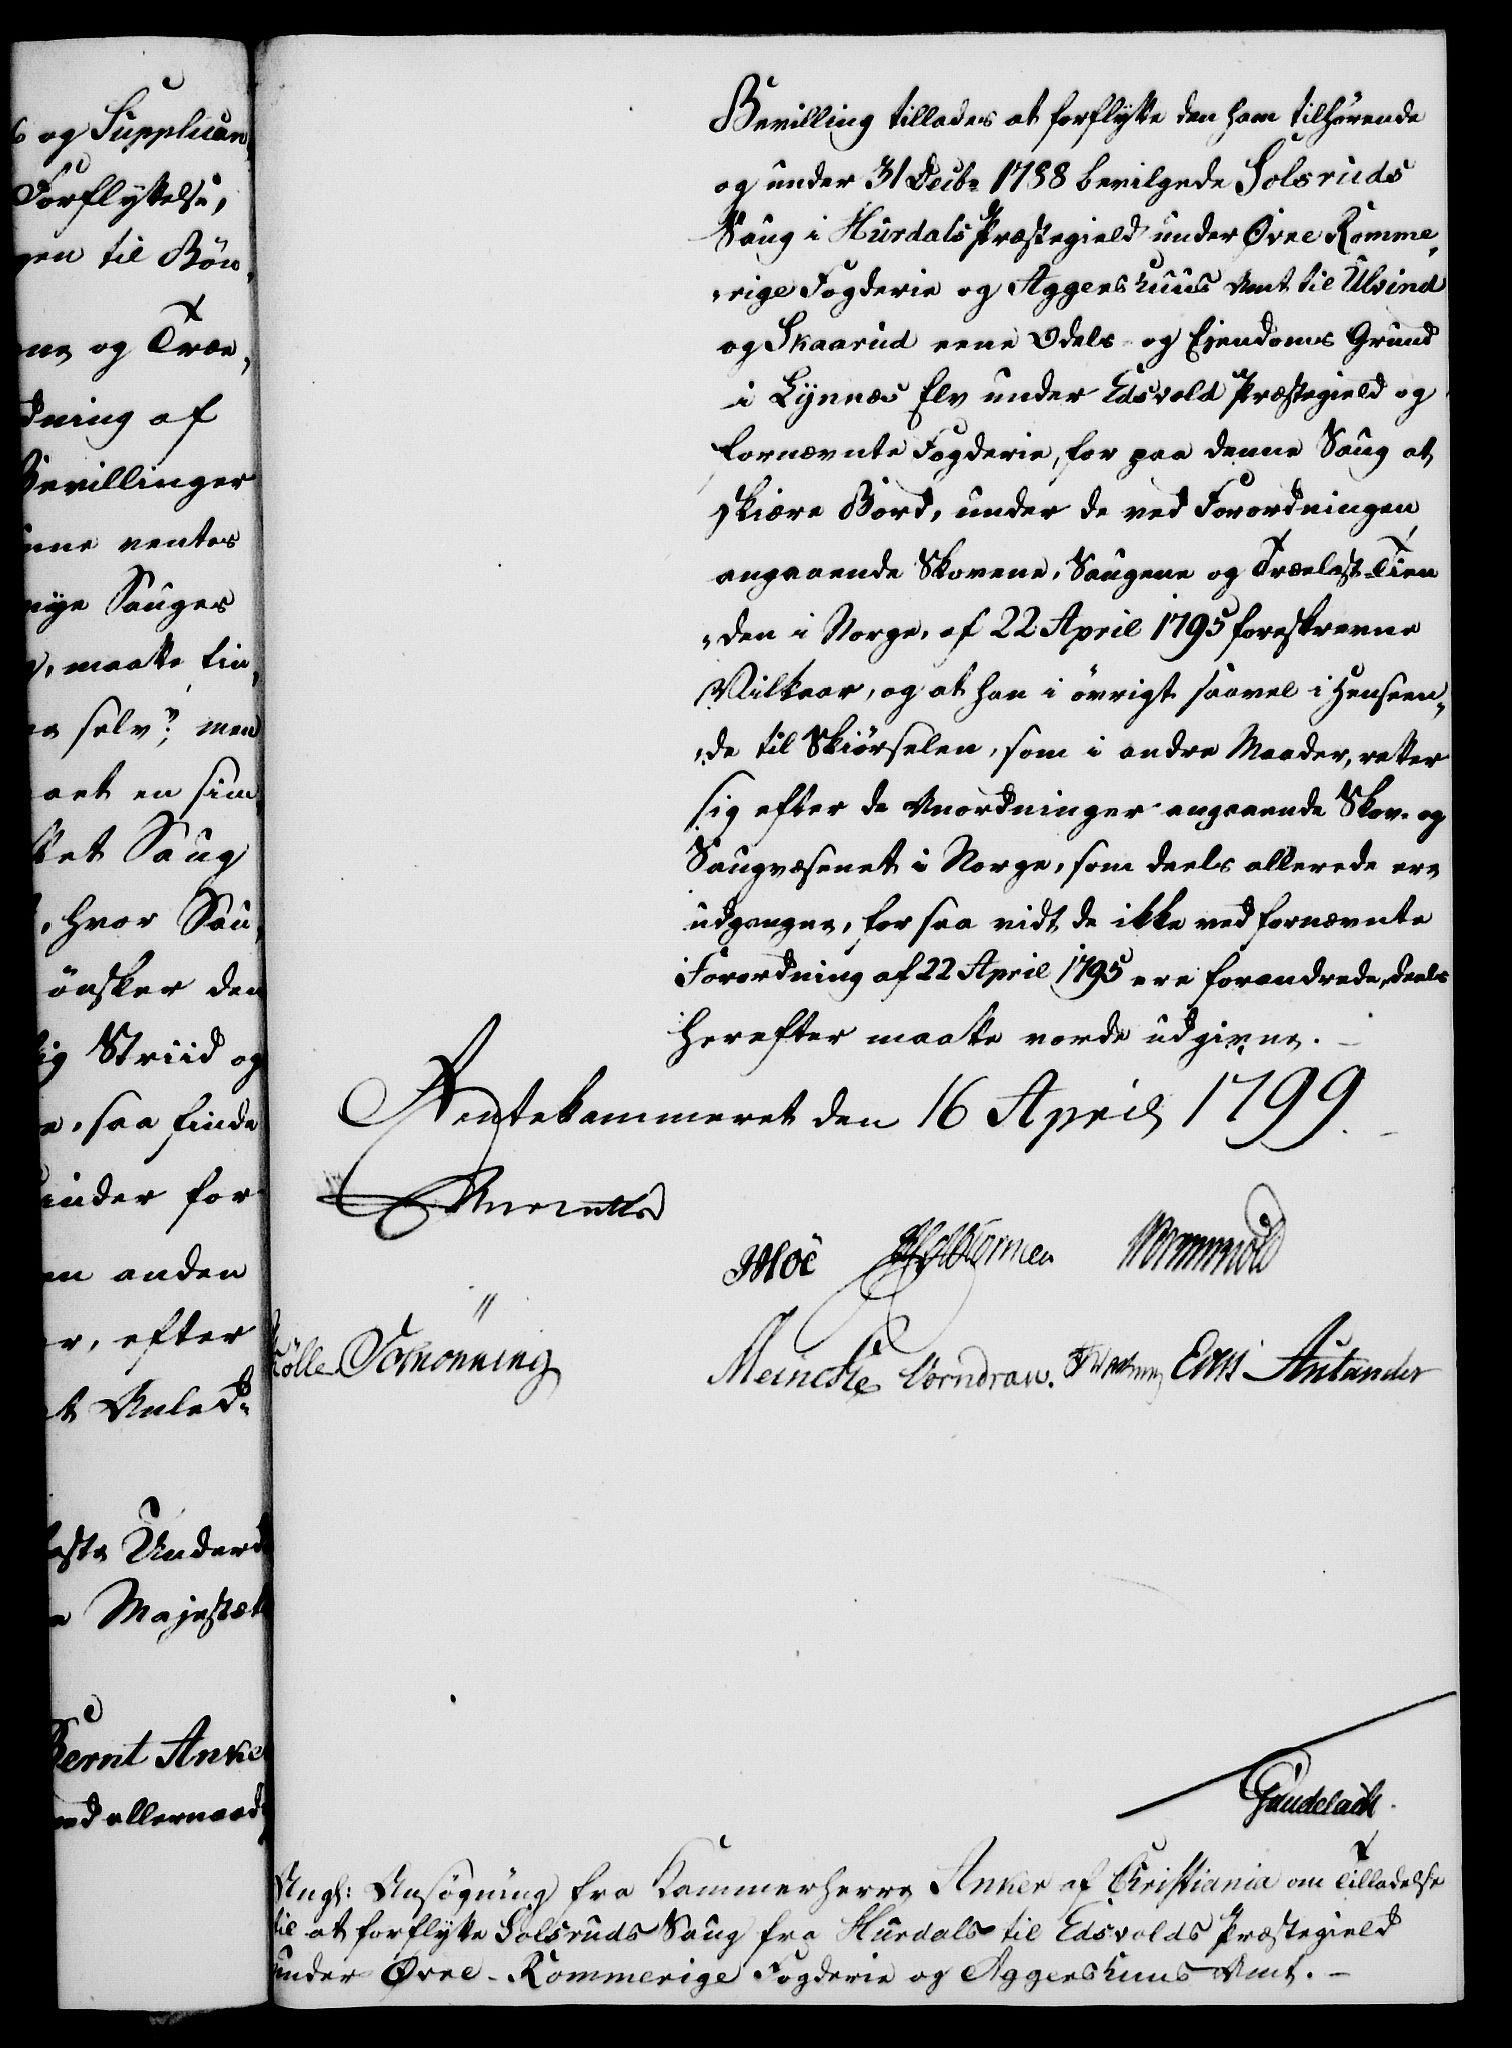 og Supplican
Forflyttelse,
gen til Bön,
og Træe,
dning af
Bevillinger
ventes
nye Sauger
maatte
selv; men
aet en
ket Saug
, hvor Sau,
önsker den
Striid og
, saa finde
for
anden
, efter
Anled
Underd
Majestæt
Bernt Anke
allernaad
Bevilling tillades at forflytte den ham tilhörende
og under 31 Decbr 1788 bevilgede Solsruds
Saug i Hurdals Præstegield under Øvre Romme,
„rige Fogderie og Aggershuus Amt til Ulvind
og Skaarud eene Odels- og Ejendoms Grund
i Lynnæs Elv under Edsvold Præstegield og
fornævnte Fogderie, for paa denne Saug at
skiære Bord, under de ved Forordningen
angaaende Skovene, Saugene og Trælast-Tien
„den i Norge, af 22 April 1795 foreskrevne
Vilkaar, og at han i övrigt saavel i Henseen„
„de til Skiörselen, som i andre Maader, retter
sig efter de Anordninger angaaende Skov- og
Saugvæsenet i Norge, som deels allerede ere
udgangne, for saa vidt de ikke ved fornævnte
Forordning af 22 April 1795 ere forandrede, deels
herefter maatte vorde udgivne. –
Rentekammeret den 16 April 1799. –
Moe Wormskiold
Schönning Meincke Corndran.
Gundelach.
Angl: Ansögning fra Kammerherre Anker af Christiania om Tilladelse
til at forflytte Solsruds Saug fra Hurdals til Edsvolds Præstegield
under Øvre-Rommerige Fogderie og Aggershuus Amt. –